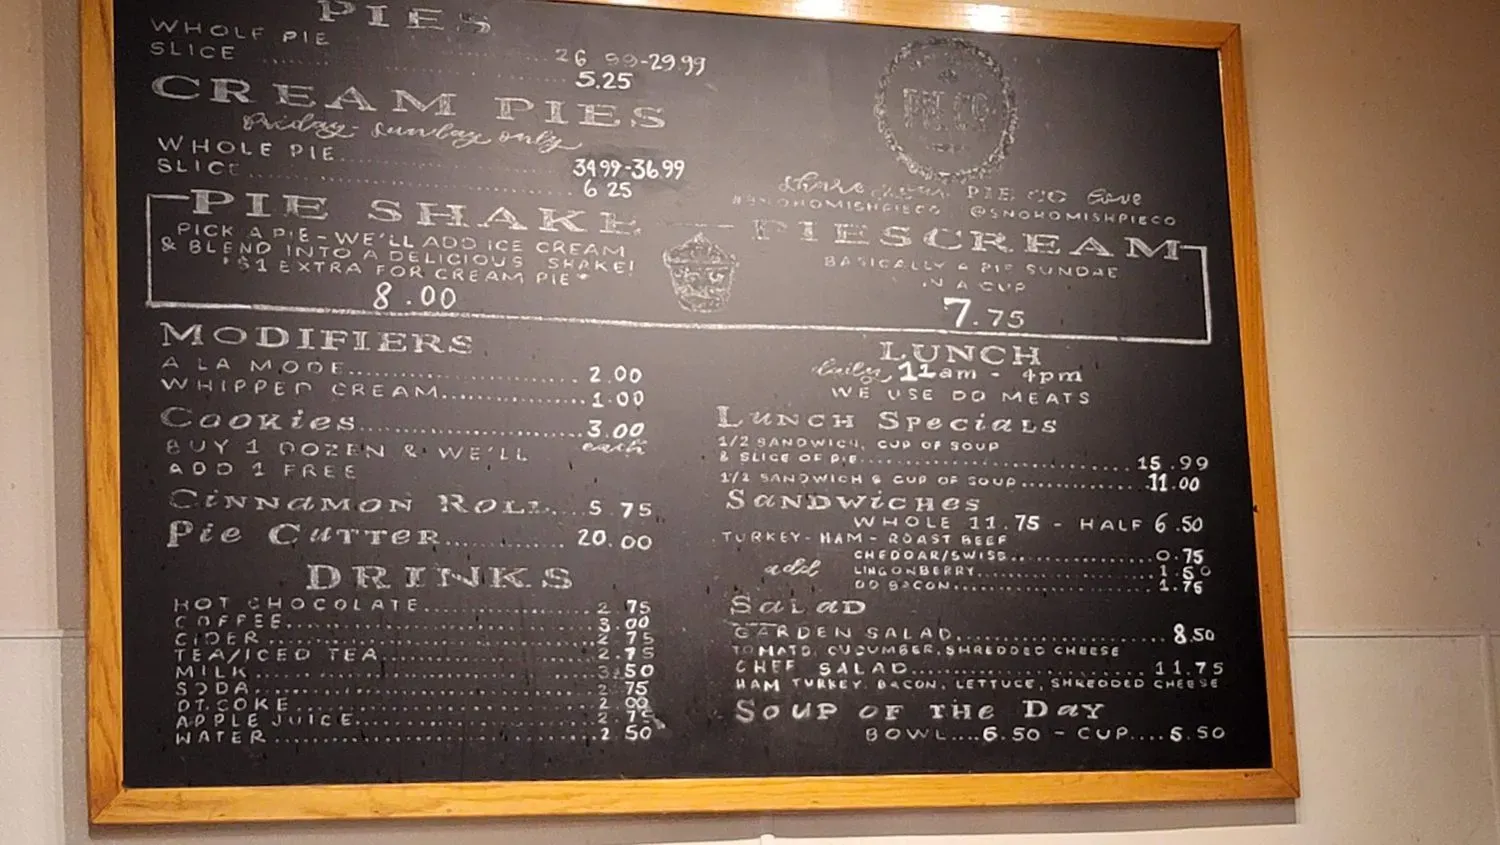 PIES
WHOLE PIE ........ 26.99-29.99
SLICE ........ 5.25
CREAM PIES
Friday-Sunday only
WHOLE PIE........ 34.99-36.99
SLICE........ 6.25
PIE SHAKE
PICK A PIE-WE'LL ADD ICE CREAM
& BLEND INTO A DELICIOUS SHAKE!
*$1 EXTRA FOR CREAM PIE*
8.00
MODIFIERS
A LA MODE........ 2.00
WHIPPED CREAM........ 1.00
Cookies........ 3.00
each
BUY 1 DOZEN & WE'LL
ADD 1 FREE
Cinnamon Roll.... 5.75
Pie Cutter........ 20.00
DRINKS
HOT CHOCOLATE........ 2.75
COFFEE........ 3.00
CIDER........ 2.75
TEA/ICED TEA........ 2.75
MILK........ 3.50
SODA........ 2.75
DT. COKE........ 2.00
APPLE JUICE........ 2.75
WATER........ 2.50
PIE CO
share PIE CO love
#SNOHOMISHPIECO @SNOHOMISHPIECO
PIESCREAM
BASICALLY A PIE SUNDAE
IN A CUP
7.75
LUNCH
daily 11am - 4pm
WE USE DD MEATS
Lunch Specials
1/2 SANDWICH, CUP OF SOUP
& SLICE OF PIE........ 15.99
1/2 SANDWICH & CUP OF SOUP........ 11.00
Sandwiches
WHOLE 11.75 - HALF 6.50
TURKEY- HAM- ROAST BEEF
add
CHEDDAR/SWISS........ 0.75
LINGONBERRY........ 1.50
DD BACON........ 1.75
Salad
GARDEN SALAD........ 8.50
TOMATO, CUCUMBER, SHREDDED CHEESE
CHEF SALAD........ 11.75
HAM TURKEY, BACON, LETTUCE, SHREDDED CHEESE
Soup of the Day
BOWL....6.50 - CUP....5.50